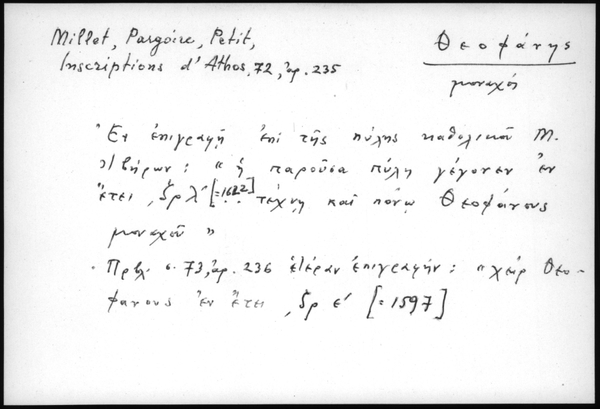 Millet, Pargoire, Petit,
Inscriptions d'Athos, 72, ἀρ. 235
Θεοφάνης
μοναχός
Ἐν ἐπιγραφῇ ἐπὶ τῆς πύλης καθολικοῦ Μ.
Ἰβήρων: «ἡ παροῦσα πύλη γέγονεν ἐν
ἔτει ͵ζρλ' [=1622] τέχνῃ καὶ πόνῳ Θεοφάνους
μοναχοῦ»
· Πρβλ. σ. 73, ἀρ. 236 ἑτέραν ἐπιγραφήν: «χεὶρ Θεο-
φάνους ἐν ἔτει ͵ζρε' [=1597]